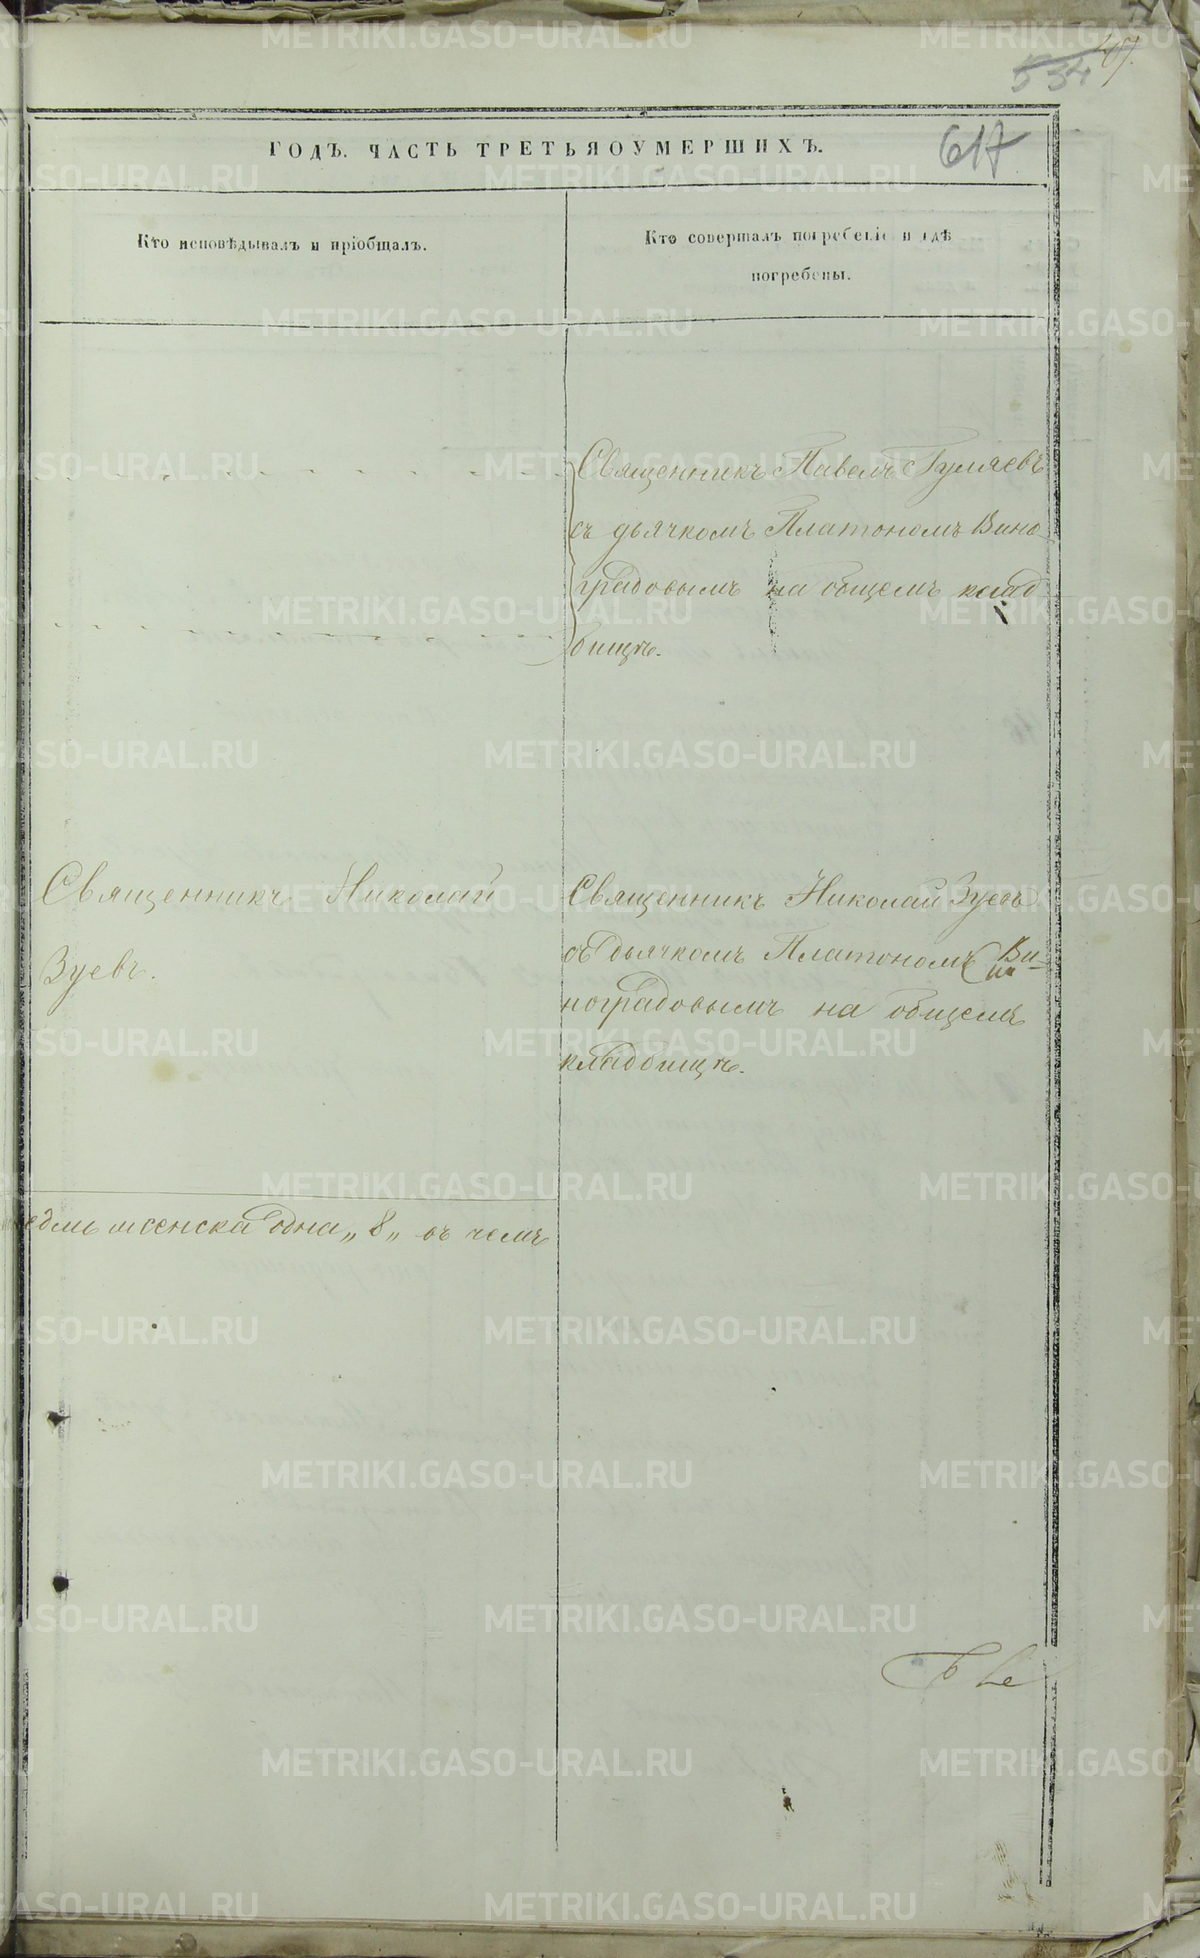 534
617
ГОДЪ. ЧАСТЬ ТРЕТЬЯ О УМЕРШИХЪ.
Кто исповѣдывалъ и пріобщалъ.
Кто совершалъ погребеніе и гдѣ
погребены.
Священникъ Павелъ Гуляевъ
съ дьячкомъ Платономъ Вино-
градовымъ на общемъ клад
бищѣ.
Священникъ Николай
Зуевъ.
Священникъ Николай Зуевъ
съ дьячкомъ Платономъ Ви-
ноградовымъ на общемъ
кладбищѣ.
женска одна „8„ въ чемъ
METRIKI.GASO-URAL.RU